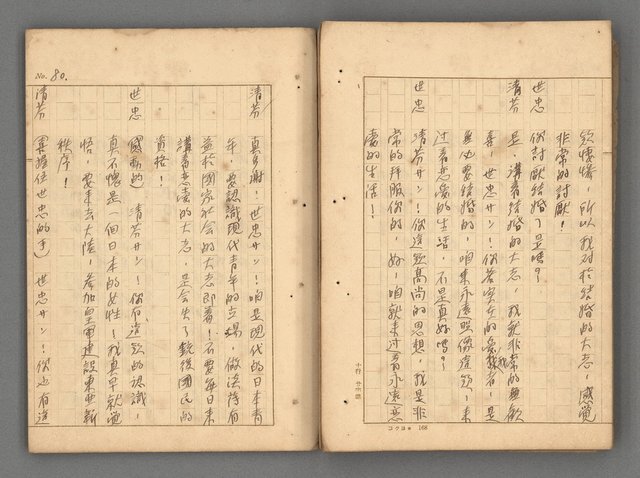 欵懐憬，所以我对於結婚的大志，感覚
非常的討厭！
世忠　你討厭結婚？是嗎？
清芬　是，講着結婚的大志，我就非常的無歓
喜，世忠サン！你若実在的愛我着，是
無必要結婚的，咱来永遠照像這欵！来
过着恋愛的生活，不是真好嗎？
世忠　清芬サン！你這欵高尚的思想，我是非
常的拜服你的，好，咱就来过着永遠恋
愛的生活！
十行 廿字詰
コクヨ 168
No. 80.
清芬　真多謝！世忠サン！咱是現代的日本青
年，要認識現代青年的立場，做法得有
益於國家社会的大志即着！不要每日来
講着恋愛的大志，是会失了銃後國民的
資格！
世忠　（感動的）清芬サン！你有這欵的認識，
真不愧是一個日本的女性！我真早就覚
悟，要来去大陸，参加皇軍建設東亜新
秩序！
清芬　（緊握住世忠的手）世忠サン！你也有這